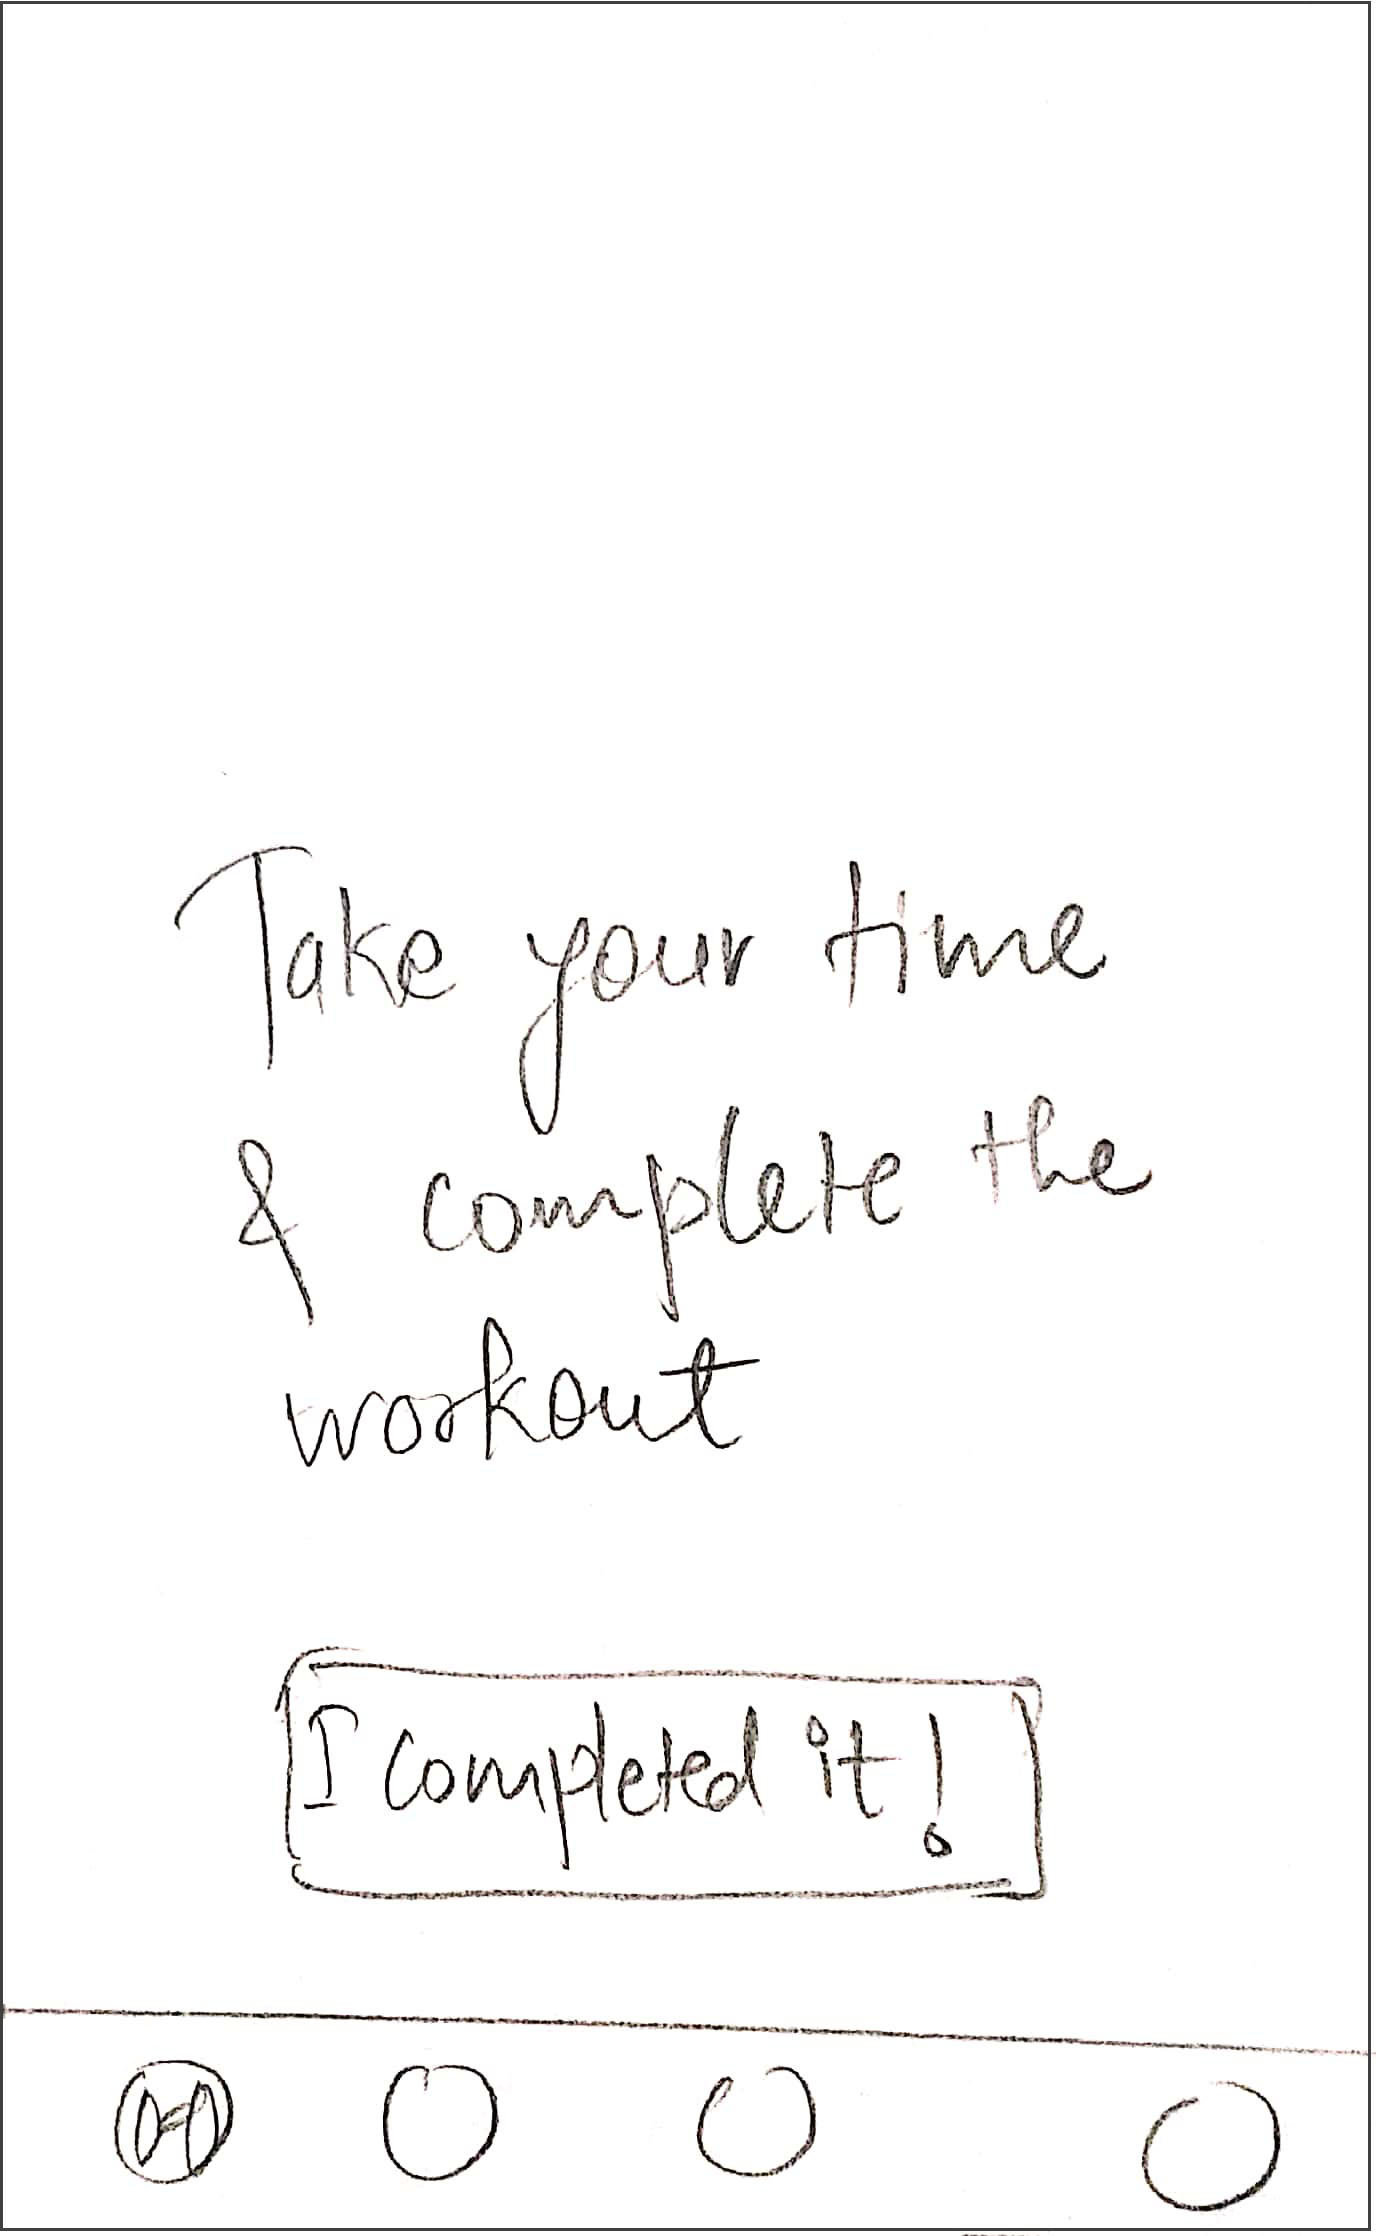 Take your time
& complete the
workout
I completed it!